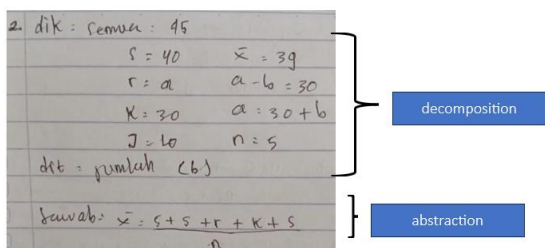 2. dik : semua : 45
S = 40 x̄ = 39
r = a a - b = 30
K = 30 a = 30 + b
J = b n = 5
dit = jumlah (b)
Jawab: x̄ = S + S + r + K + S
n
decomposition
abstraction